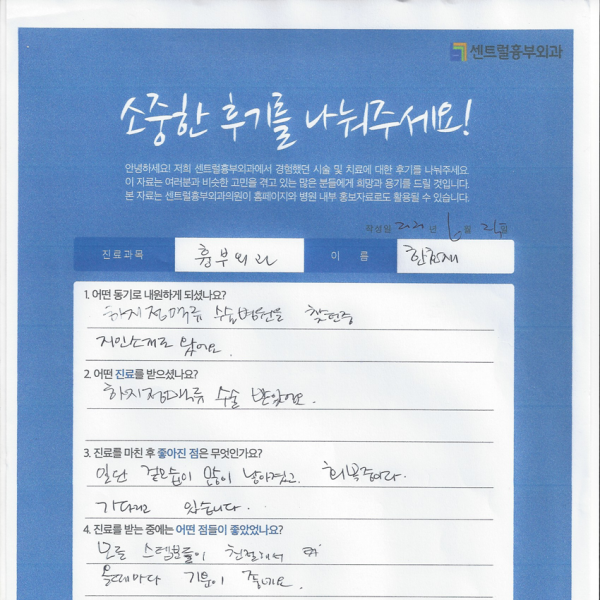 센트럴흉부외과
소중한 후기를 나눠주세요!
안녕하세요! 저희 센트럴흉부외과에서 경험했던 시술 및 치료에 대한 후기를 나눠주세요.
이 자료는 여러분과 비슷한 고민을 겪고 있는 많은 분들에게 희망과 용기를 드릴 것입니다.
본 자료는 센트럴흉부외과의원이 홈페이지와 병원 내부 홍보자료로도 활용될 수 있습니다.
작성일 년 월 일
진료과목 흉부외과 이 름
1. 어떤 동기로 내원하게 되셨나요?
하지정맥류 수술병원을 찾던중
지인소개로 왔어요.
2. 어떤 진료를 받으셨나요?
하지정맥류 수술 받았어요.
3. 진료를 마친 후 좋아진 점은 무엇인가요?
일단 걸음이 많이 나아졌고. 회복중이라.
기다리고 있습니다.
4. 진료를 받는 중에는 어떤 점들이 좋았었나요?
모든 스텝분들이 친절해서
올때마다 기분이 좋네요.